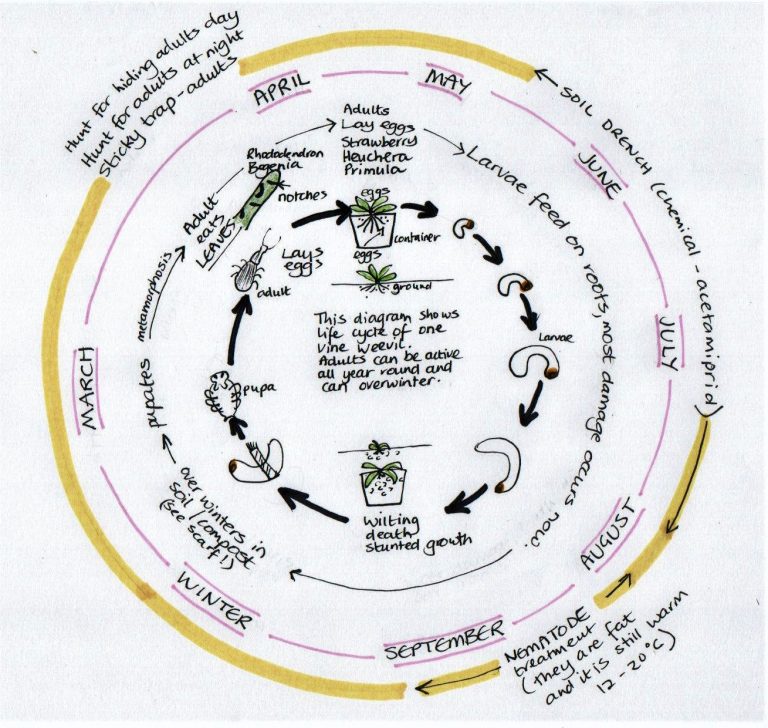 Hunt for hiding adults day
Hunt for adults at night
sticky trap - adults
APRIL
MAY
JUNE
JULY
AUGUST
SEPTEMBER
WINTER
MARCH
SOIL DRENCH (chemical - acetamiprid)
NEMATODE
treatment
(they are fat
and it is still warm
12 - 20°C)
Adults
Lay eggs
Strawberry
Heuchera
Primula
Larvae feed on roots, most damage occurs now.
over winters in
soil / compost
(see scarf!)
pupates
metamorphosis
Adult
eats
LEAVES
Rhododendron
Bergenia
notches
eggs
container
eggs
ground
Lays
eggs
adult
Larvae
pupa
This diagram shows
life cycle of one
vine weevil.
Adults can be active
all year round and
can overwinter.
Wilting
death
stunted growth